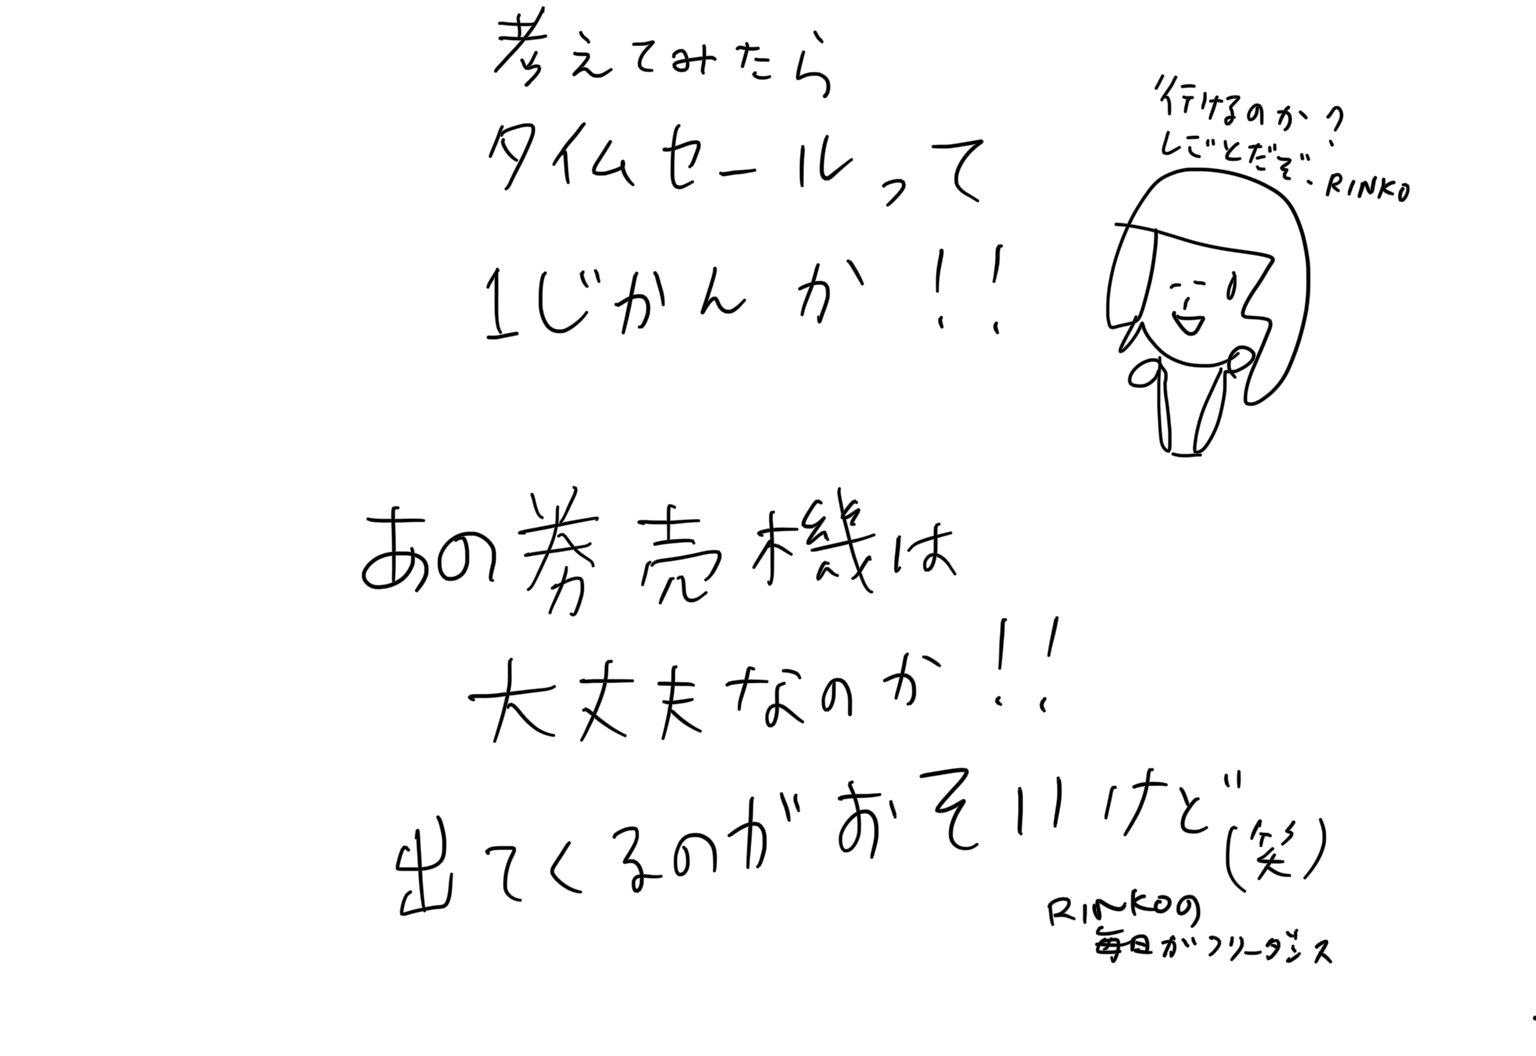 考えてみたら
タイムセールって
1じかんか!!
行けるのか?
しごとだぞ.RINKO
あの券売機は
大丈夫なのか!!
出てくるのがおそいけど(笑)
RINKOの
毎日がフリーダンス